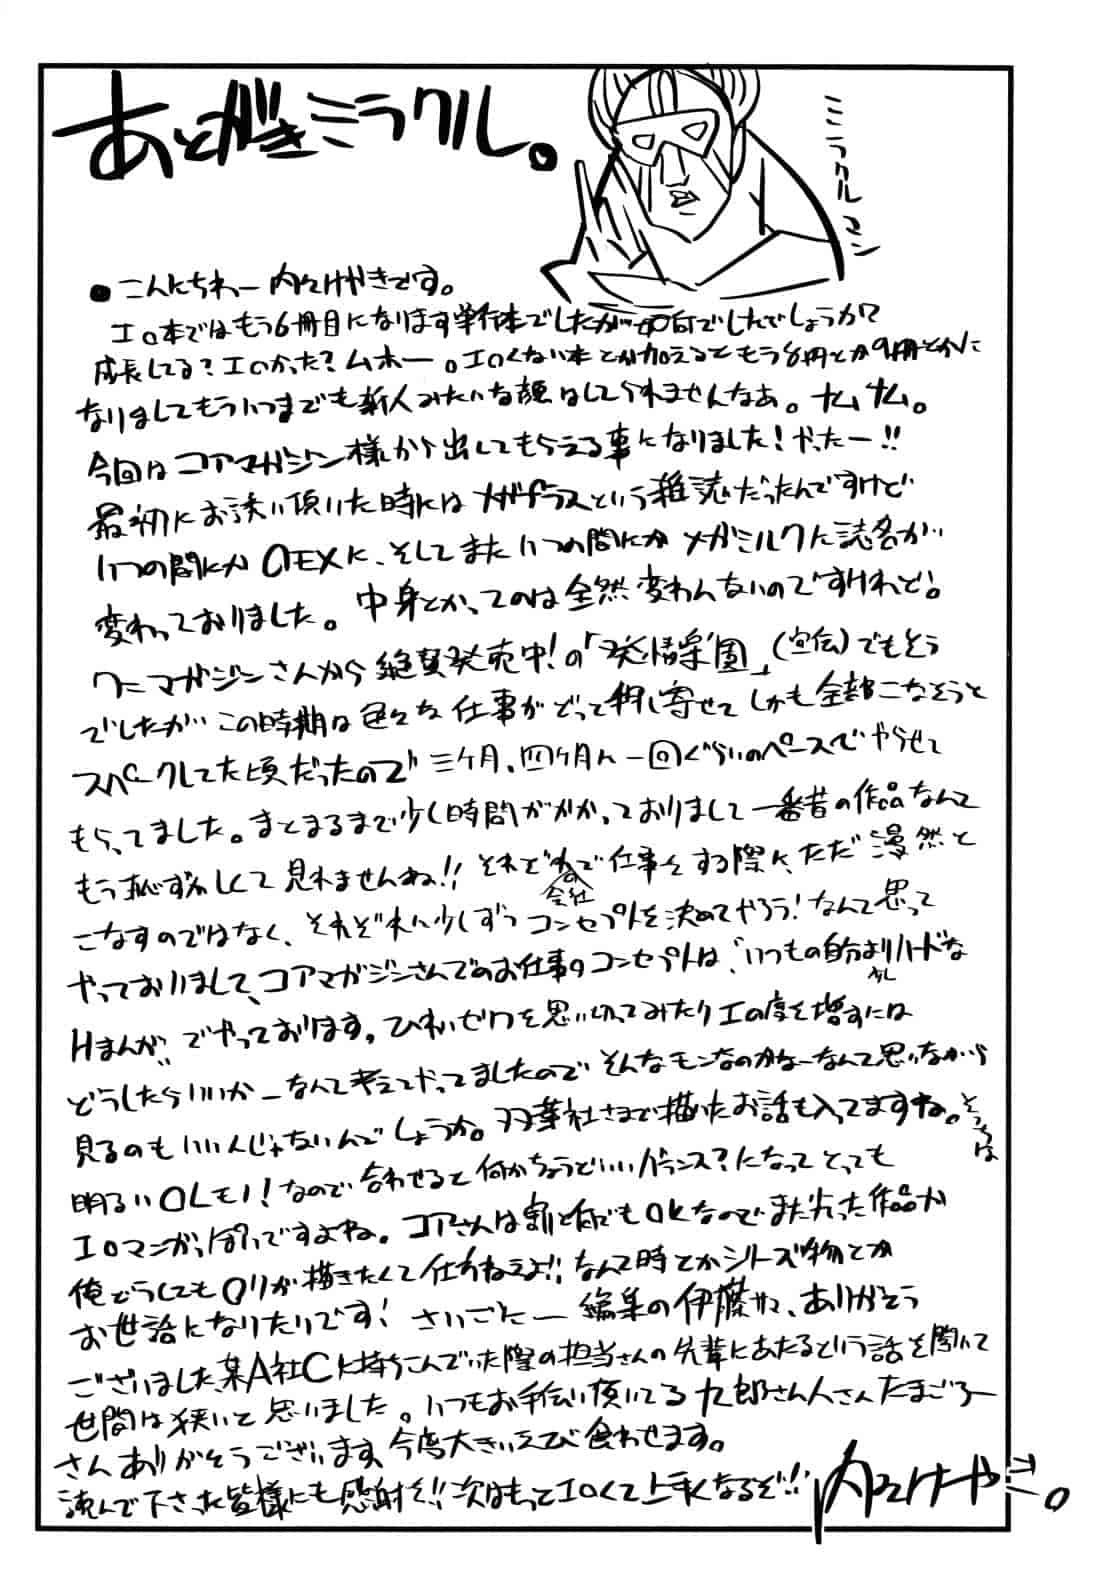 あとがきミラクル。
ミラクルマン
●こんにちわー内々けやきです。
エロ本ではもう6冊目になります単行本でしたが如何でしたでしょうか?
成長してる?エロかった?ムホー。エロくない本とか加えるともう8冊とか9冊とかに
なりましてもういつまでも新人みたいな顔はしてられませんなあ。ナムナム。
今回はコアマガジン様から出してもらえる事になりました!やったー!!
最初にお誘い頂いた時にはメガプラスという雑誌だったんですけど
いつの間にかOEXに、そしてまたいつの間にかメガミルクに誌名が
変わっておりました。中身とかってのは全然変わんないのですけれど。
ワニマガジンさんから絶賛発売中!の「発情楽園」(宣伝)でもそう
でしたがこの時期は色々な仕事がどって押し寄せてしかも全部こなそうと
スパークしてた頃だったので三ケ月、四ケ月に一回ぐらいのペースでやらせて
もらってました。まとまるまで少し時間がかかっておりまして一番昔の作品なんて
もう恥ずかしくて見れませんね!!それぞれの会社で仕事をする際に、ただ漫然と
こなすのではなく、それぞれに少しずつコンセプトを決めてやろう!なんて思って
やっておりまして、コアマガジンさんでのお仕事のコンセプトは、"いつもの自分より少しハードな
Hまんが"でやっております。ひわいゼリフを思い切ってみたりエロ度を増すには
どうしたらいいかーなんて考えてやってましたのでそんなモンなのかなーなんて思いながら
見るのもいいんじゃないんでしょうか。双葉社さまで描いたお話も入ってますね。そっちは
明るいOLモノ!なので合わせると何かちょうどいいバランス?になってとっても
エロマンガっぽいですよね。コアさんは割と何でもOKなのでまた尖った作品か
俺どうしてもロリが描きたくて仕方ねえよ!!なんて時とかシリーズ物とか
お世話になりたいです!さいごにー編集の伊藤サマ、ありがそう
ございました、某A社Cに持ちこんでいた際の担当さんの先輩にあたるという話を聞いて
世間は狭いと思いました。いつもお手伝い頂いてる九郎さん人さんたまごろー
さんありがそうございます、今度大きいえび食わせます。
読んで下さった皆様にも感謝を!!次はもってエロくて上手くなるぞ!!
内々けやき。